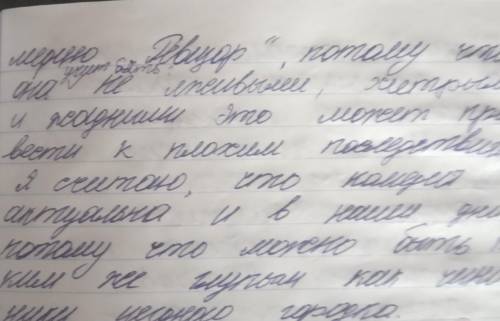 медию "Ревизор", потому что
учит быть
она не лживыми, хитрым
и жадными это может при
вести к плохим последствия
Я считаю, что комедия
актуальна и в наши дни
потому что можно быть
ким же глупым как чинов
ники уездного городка.